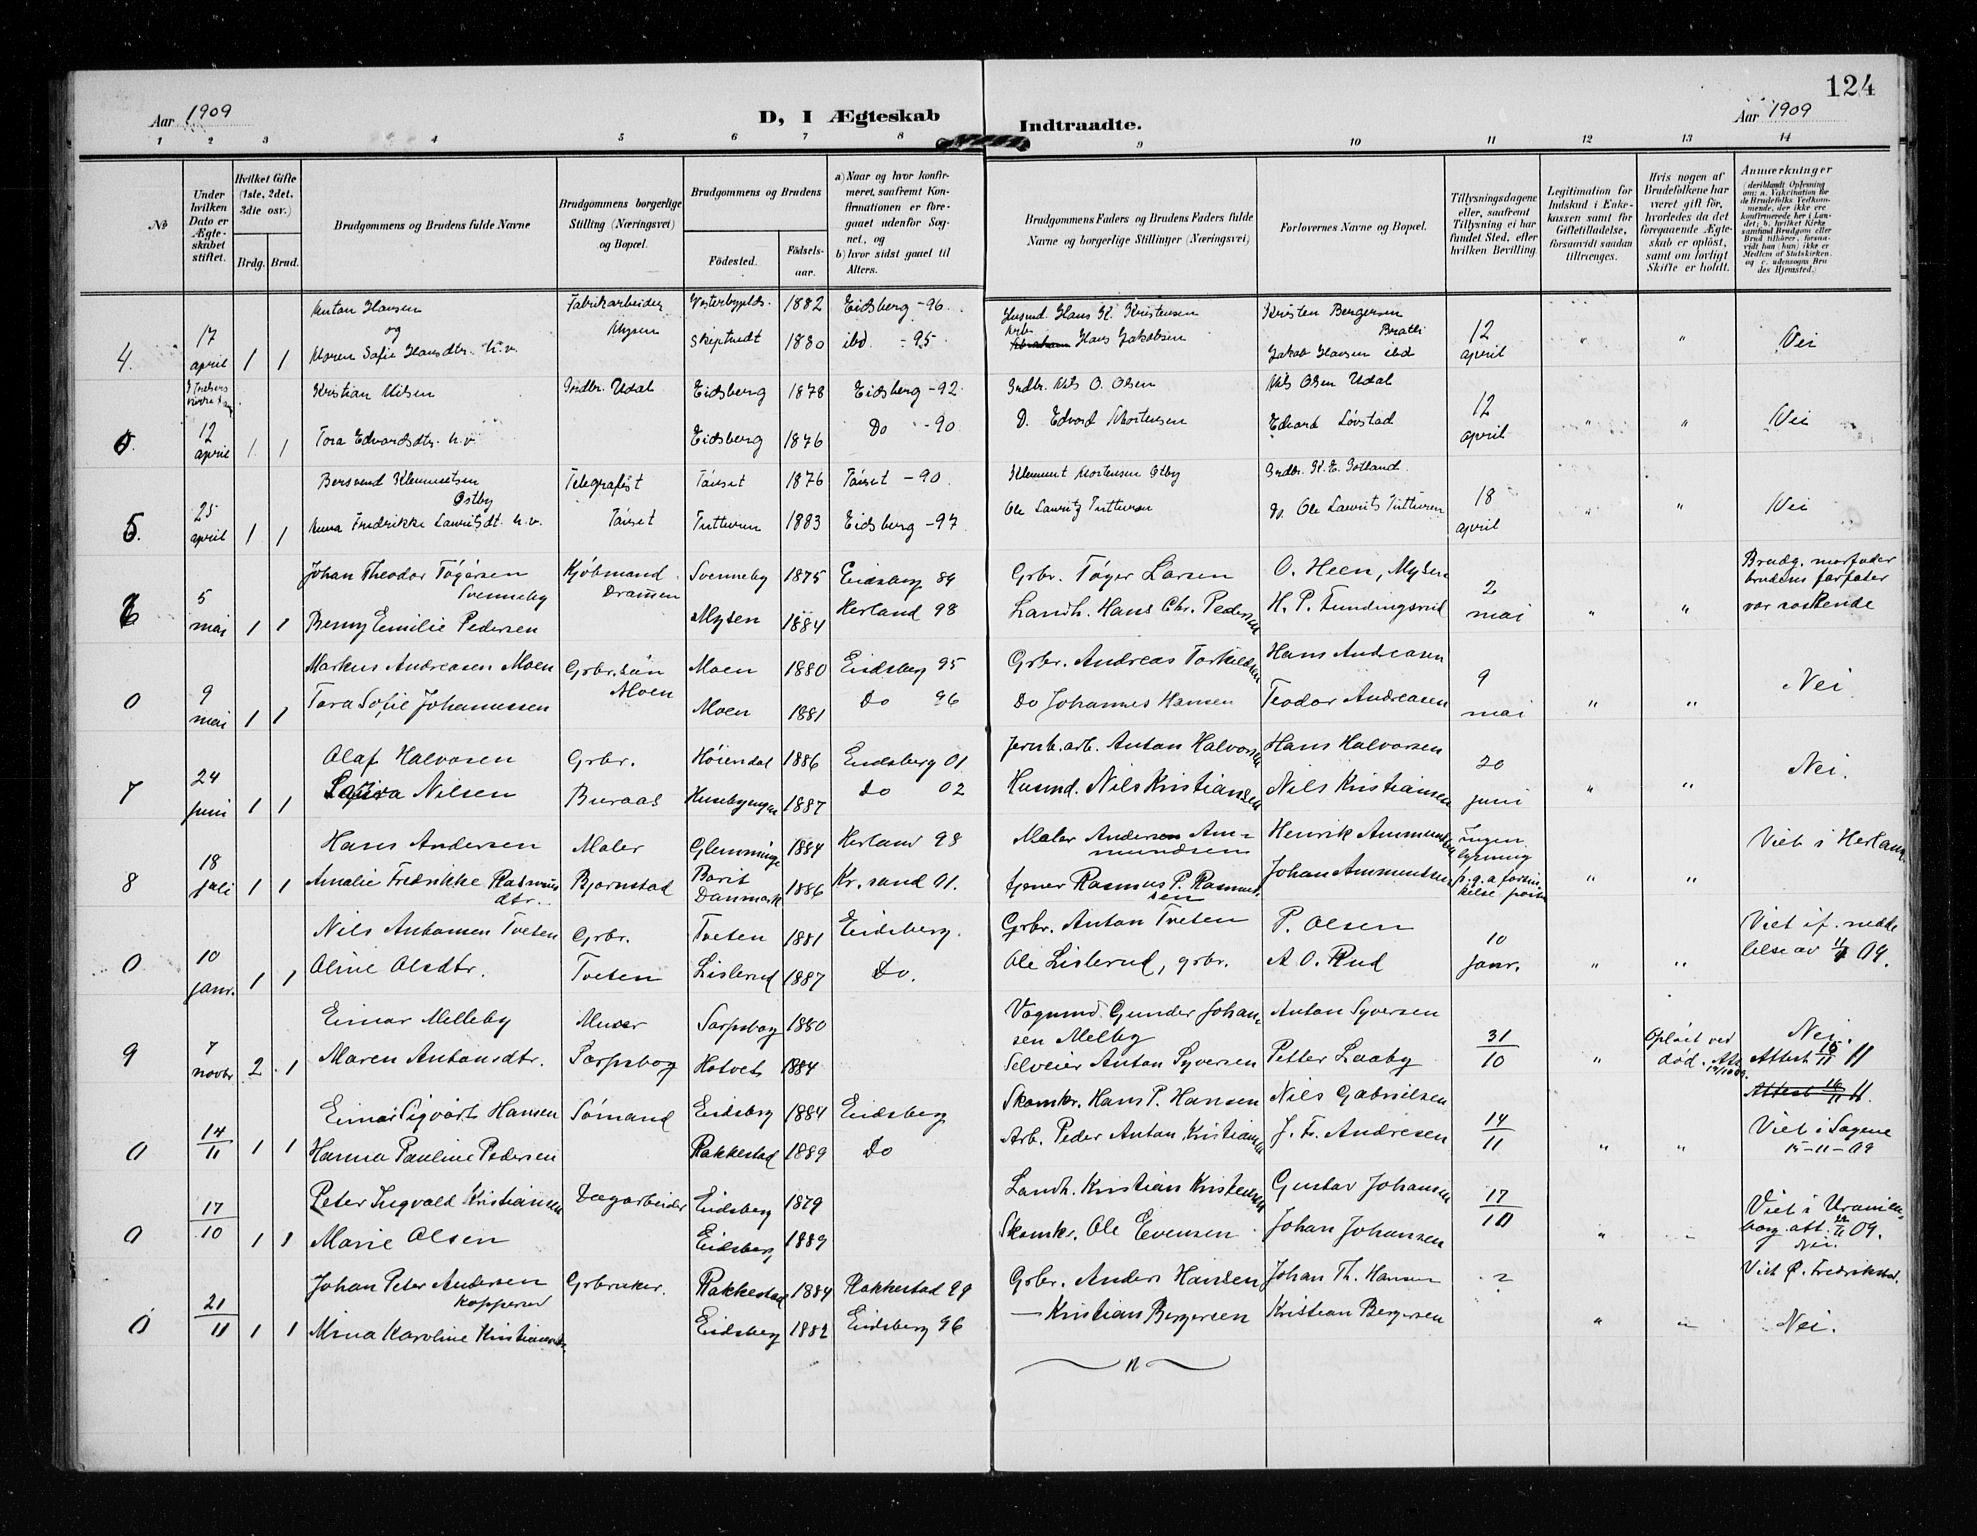 124
Aar 1909
D, I Ægteskab Indtraadte.
Aar 1909
1 2 3 4 5 6 7 8 9 10 11 12 13 14
No
Under hvilken Dato er Ægteskabet stiftet.
Hvilket Gifte (1ste, 2det, 3die osv.)
Brdg. Brud.
Brudgommens og Brudens fulde Navne
Brudgommens borgerlige Stilling (Næringsvei) og Bopæl.
Brudgommens og Brudens
Fødested. Fødselsaar.
a) Naar og hvor konfirmeret, saafremt Konfirmationen er foregaaet udenfor Sognet, og
b) hvor sidst gaaet til Alters.
Brudgommens Faders og Brudens Faders fulde Navne og borgerlige Stillinger (Næringsvei)
Forlovernes Navne og Bopæl.
Tillysningsdagene eller, saafremt Tillysning ei har fundet Sted, efter hvilken Bevilling.
Legitimation for Indskud i Enkekassen samt for Giftetilladelse, forsaavidt saadan tiltrænges.
Hvis nogen af Brudefolkene har været gift før, hvorledes da det foregaaende Ægteskab er opløst, samt om lovligt Skifte er holdt.
Anmærkninger
(deriblandt Oplysning om: a. Vakcination for de Brudefolks Vedkommende, der ikke ere konfirmerede her i Landet; b. hvilket Kirkesamfund Brudgom eller Brud tilhører, forsaavidt han (hun) ikke er Medlem af Statskirken, og c. udensogns Brudes Hjemsted.)
Anton Hansen Fabrikarbeider 1882 Eidsberg -96 Husmd. Hans K. Kristensen Kristen Bergersen
og Mysen Bratli
4. 17 april 1 1 Maren Sofie Hansdtr. u.v. 1880 ibd -95 Hans Jakobsen Jakob Hansen ibd 12 april " " Nei
Kristian Nilsen Grdbr. Udal Eidsberg 1878 Eidsberg -92 Grdbr. Nils O. Olsen Nils Olsen Udal
0. 12 april 1 1 Tora Edvardsdtr. u.v. Eidsberg 1876 Do -90 D. Edvard Mortensen Edvard Løvstad 12 april " " Nei
Bersvend Klemmetsen Telegrafist Tønset 1876 Tønset -90 Klemmet Mortensen Østby Grdbr. K. E. Gotland
Østby
5. 25 april 1 1 Anna Fredrikke Lauritsdt. u.v. Tønset Tutturen 1883 Eidsberg -97 Ole Lauritz Tutturen Do. Ole Laurits Tutturen 18 april " " Nei
Johan Theodor Tøgersen Kjøbmand Svenneby 1875 Eidsberg 89 Grbr. Tøger Larsen O. Heen, Mysen Brudg. morfader
Svenneby Drammen brudens farfader
6 5 mai 1 1 Benny Emilie Pedersen Mysen 1884 Herland 98 Landh. Hans Chr. Pedersen H. P. Fundingsrud 2 mai " " var søskende
Markus Andreasen Moen Grbr. søn Moen 1880 Eidsberg 95 Grbr. Andreas Torkildsen Hans Andreasen
Moen
0 9 mai 1 1 Tora Sofie Johannessen Moen 1881 Do 96 Do Johannes Hansen Teodor Andreasen 9 mai " " Nei
Olaf Halvorsen Grbr. Høiendal 1886 Eidsberg 01 Jernb.arb. Anton Halvorsen Hans Halvorsen
7 24 juni 1 1 Nilsen Buraas 1887 Do 02 Husmd. Nils Kristiansen Nils Kristiansen 20 juni " " Nei.
Hans Andersen Maler Glemminge 1884 Herland 98 Maler Andersen Ammundsen Henrik Ammundsen Ingen lysning Viet i Herland.
8 18 juli 1 1 Amalie Fredrikke Rasmusdtr. Bjørnstad Danmark 1886 Kr.sand 01. Rasmus P. Rasmussen Johan Ammundsen " "
Nils Antonsen Tveten Grbr. Tveten 1881 Eidsberg. Grbr. Anton Tveten P. Olsen Viet if. meddelelse av
0 10 janr. 1 1 Oline Olsdtr. Tveten Lislerud 1887 Do. Ole Lislerud, grbr. A. O. Rud 10 janr. " " 09.
Einar Melleby Murer Sarpsborg 1880 Vognmd. Gunder Johansen Melby Anton Syversen Opløst ved død. Nei.
9 7 novbr 2 1 Maren Antonsdtr. Sarpsborg Hotvet 1884 Selveier Anton Syversen Petter Laaby 31/10 " Attest 16/11 11
Attest 16/11 11.
Einar Sigvart Hansen Sømand Eidsberg 1884 Eidsberg Skomkr. Hans P. Hansen Nils Gabrielsen Viet i Sagene
0 14/11 1 1 Hanna Pauline Pedersen Rakkestad 1889 Do Arb. Peder Anton Kristiansen J. Fr. Andresen 14/11 " " 15-11-09
Peter Ingvald Kristiansen Dagarbeider Eidsberg 1879 Landh. Kristian Kristensen Gustav Johansen Viet i Uranienborg att. 09.
0 17/10 1 1 Marie Olsen Eidsberg 1889 Skomkr. Ole Evensen Johan Johansen 17/10 " " Nei.
Johan Peter Andersen Grbruker. Rakkestad 1884 Rakkestad 99 Grbr. Anders Hansen Johan Th. Hansen ? Viet Ø. Fredrikstad.
Kopperud
0 21/11 1 1 Mina Karoline Kristiansdtr. Eidsberg 1882 Eidsberg 96 — Kristian Bergersen Kristian Bergersen " " Nei.